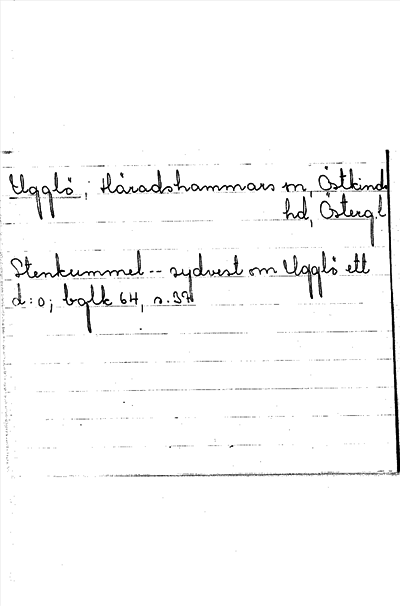 Ugglö, Häradshammars sn, Östkinds
hd, Österg.l
Stenkummel -- sydvest om Ugglö ett
d:o; bglk 64, s.32